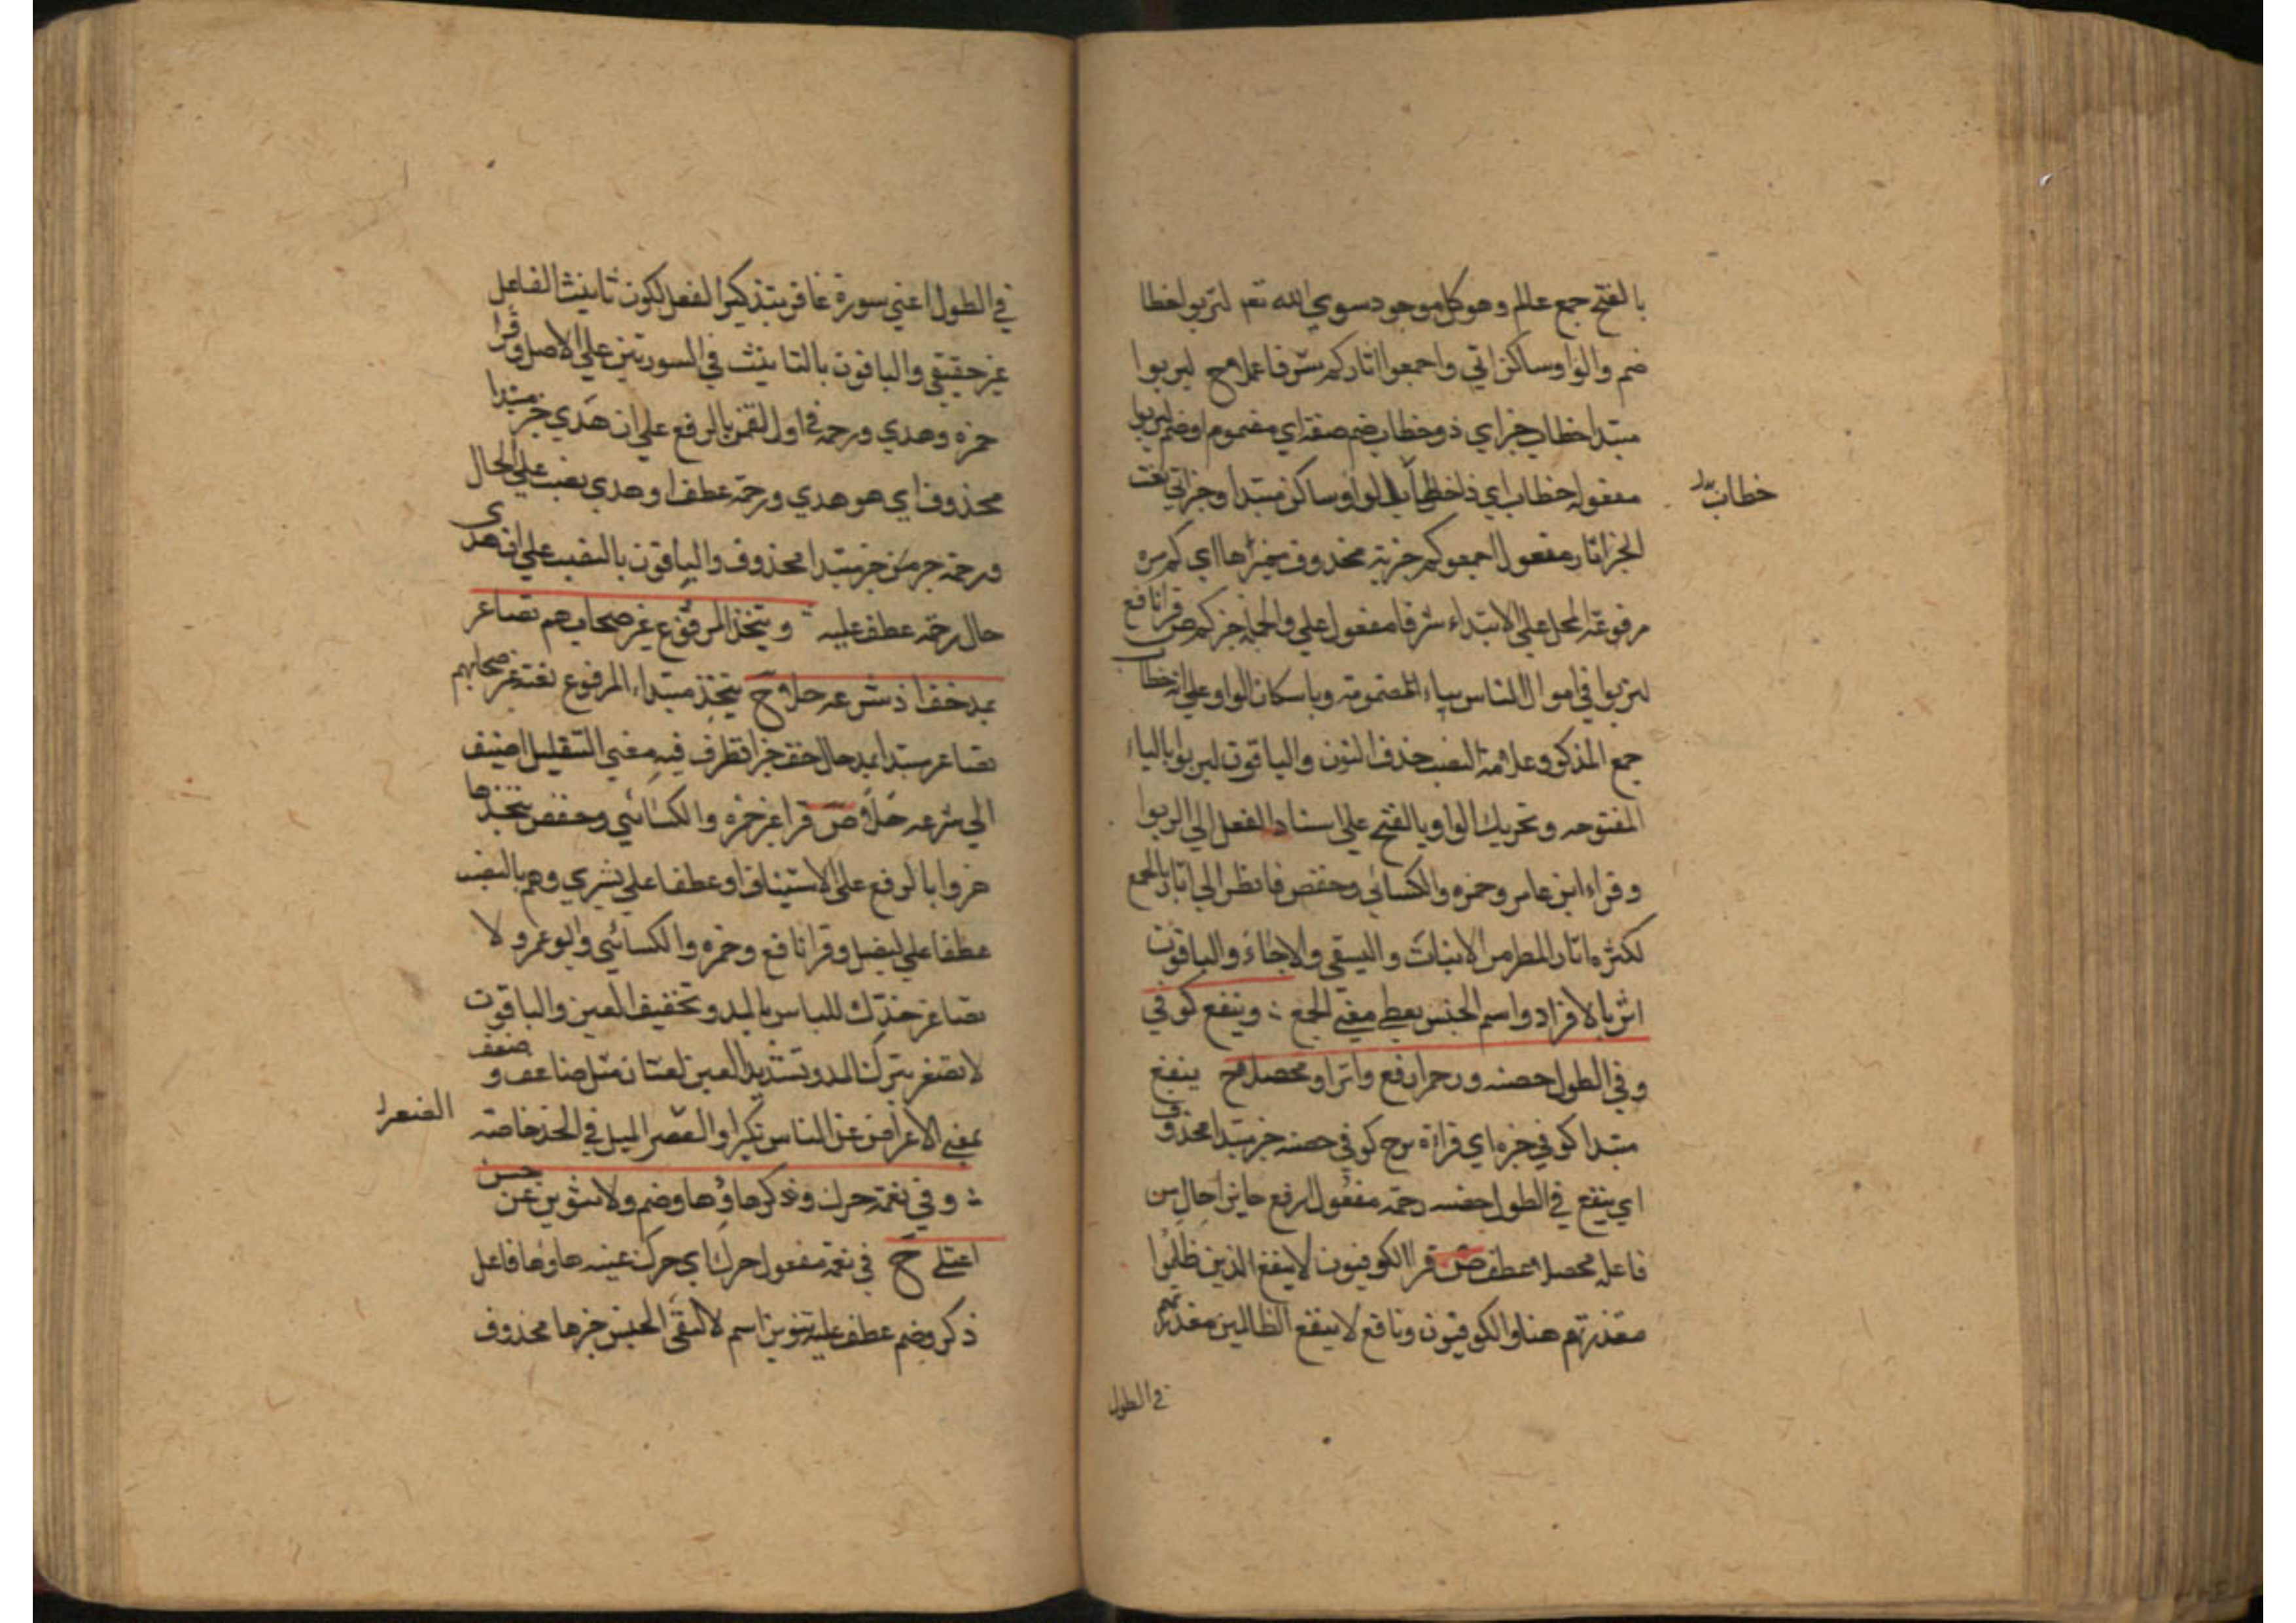 بالفتح جمع عالم وهو كل موجود سوي الله تعم لتربوا خطا
ضم والواو ساكن اتي واجمعوا اثار كم شرفا علا مح ليربوا
مبتدا خطاب خبر اي ذو خطاب ضم صفة اي مضموم او ضم ليربوا
مفعوله خطاب اي ذا خطاب الواو ساكن مبتدا وخبر اتي نعت
خطاب
الخبر اثار مفعول اجمعوا كم خبرية محذوف مميزها اي كم مرة
مرفوعة المحل علي الابتداء شرفا مفعول علي والجملة خبر كم ص قرا نافع
لتربوا في اموال الناس بتاء المضمومة وباسكان الواو علي انه خطاب
جمع المذكور وعلامة النصب حذف النون والباقون ليربوا بالياء
المفتوحه وتحريك الواو بالفتح علي اسناد الفعل الي الربوا
وقراء ابن عامر وحمزه والكسائي وحفص فانظر الي اثار بالجمع
لكثرة اثار المطر من الانبات والسقي والاحياء والباقون
اثر بالافراد واسم الجنس يعطي معني الجمع ؞ وينفع كوفي
وفي الطول حصنه ورحمة ارفع واثرا ومحصلا مح ينفع
مبتدا كوفي خبره اي قراءة كوفي حصنه خبر مبتدا محذوف
اي ينفع في الطول حصنه رحمة مفعول ارفع حايزا حال من
فاعله محصلا عطف ص قرا الكوفيون لا ينفع الذين ظلموا
معذرتهم هنا والكوفيون ونافع لا ينفع الظالمين معذرتهم
في الطول
في الطول اعني سورة غافر بتذكير الفعل لكون تانيث الفاعل
غير حقيقي والباقون بالتانيث في السورتين علي الاصل وقرا
حمزه وهدي ورحمة في اول لقمن بالرفع علي ان هدي خبر مبتدا
محذوف اي هو هدي ورحمة عطف او هدي نصب علي الحال
ورحمة خبر مبتدا محذوف والباقون بالنصب علي ان هدي
حال ورحمة عطف عليه ؞ ويتخذ المرفوع غير صحابهم تصاعر
بمد خف اذ شرعه حلا ح يتخذ مبتداء المرفوع نعته غير صحابهم
تصاعر مبتدا بمد حال خف خبر اذ ظرف فيه معني التعليل اضيف
الي شرعه حلا ص قرا غير حمزه والكسائي وحفص يتخذها
هزوا بالرفع علي الاستيناف او عطفا علي يشري وهم بالنصب
عطفا علي ليضل وقرا نافع وحمزه والكسائي وابو عمرو لا
تصاعر خدك للناس بالمد وتخفيف العين والباقون
لا تصعر بترك المد وتشديد العين لغتان مثل ضاعف وضعف
بمعني الاعراض عن الناس تكبرا والصعر الميل في الخد خاصة
الصعر
؞ وفي نعمة حرك وذكر هاؤها وضم ولا تنوين عن حسن
اعتلي ح في نعمة مفعول حرك اي حرك عينه هاوها فاعل
ذكر وضم عطف عليه تنوين اسم لا لنفي الجنس خبرها محذوف